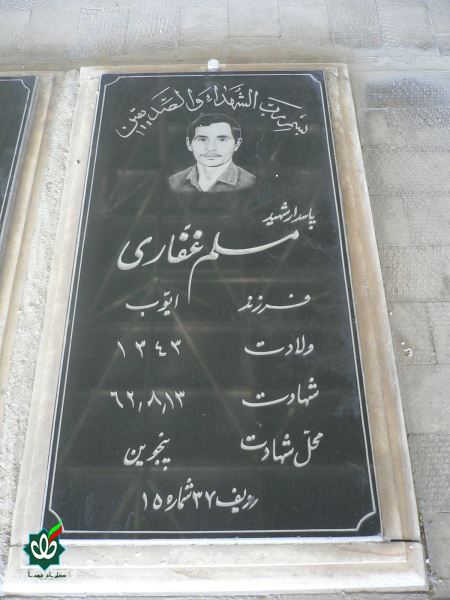 بسم رب الشهداء والصدیقین
پاسدار شهید
مسلم غفاری
فرزند ایوّب
ولادت ۱۳۴۳
شهادت ۶۲٫۸٫۱۳
محلّ شهادت پنجوین
ردیف ۳۷ شماره ۱۵